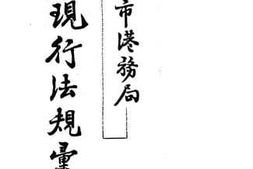 市港務局
現行法規彙